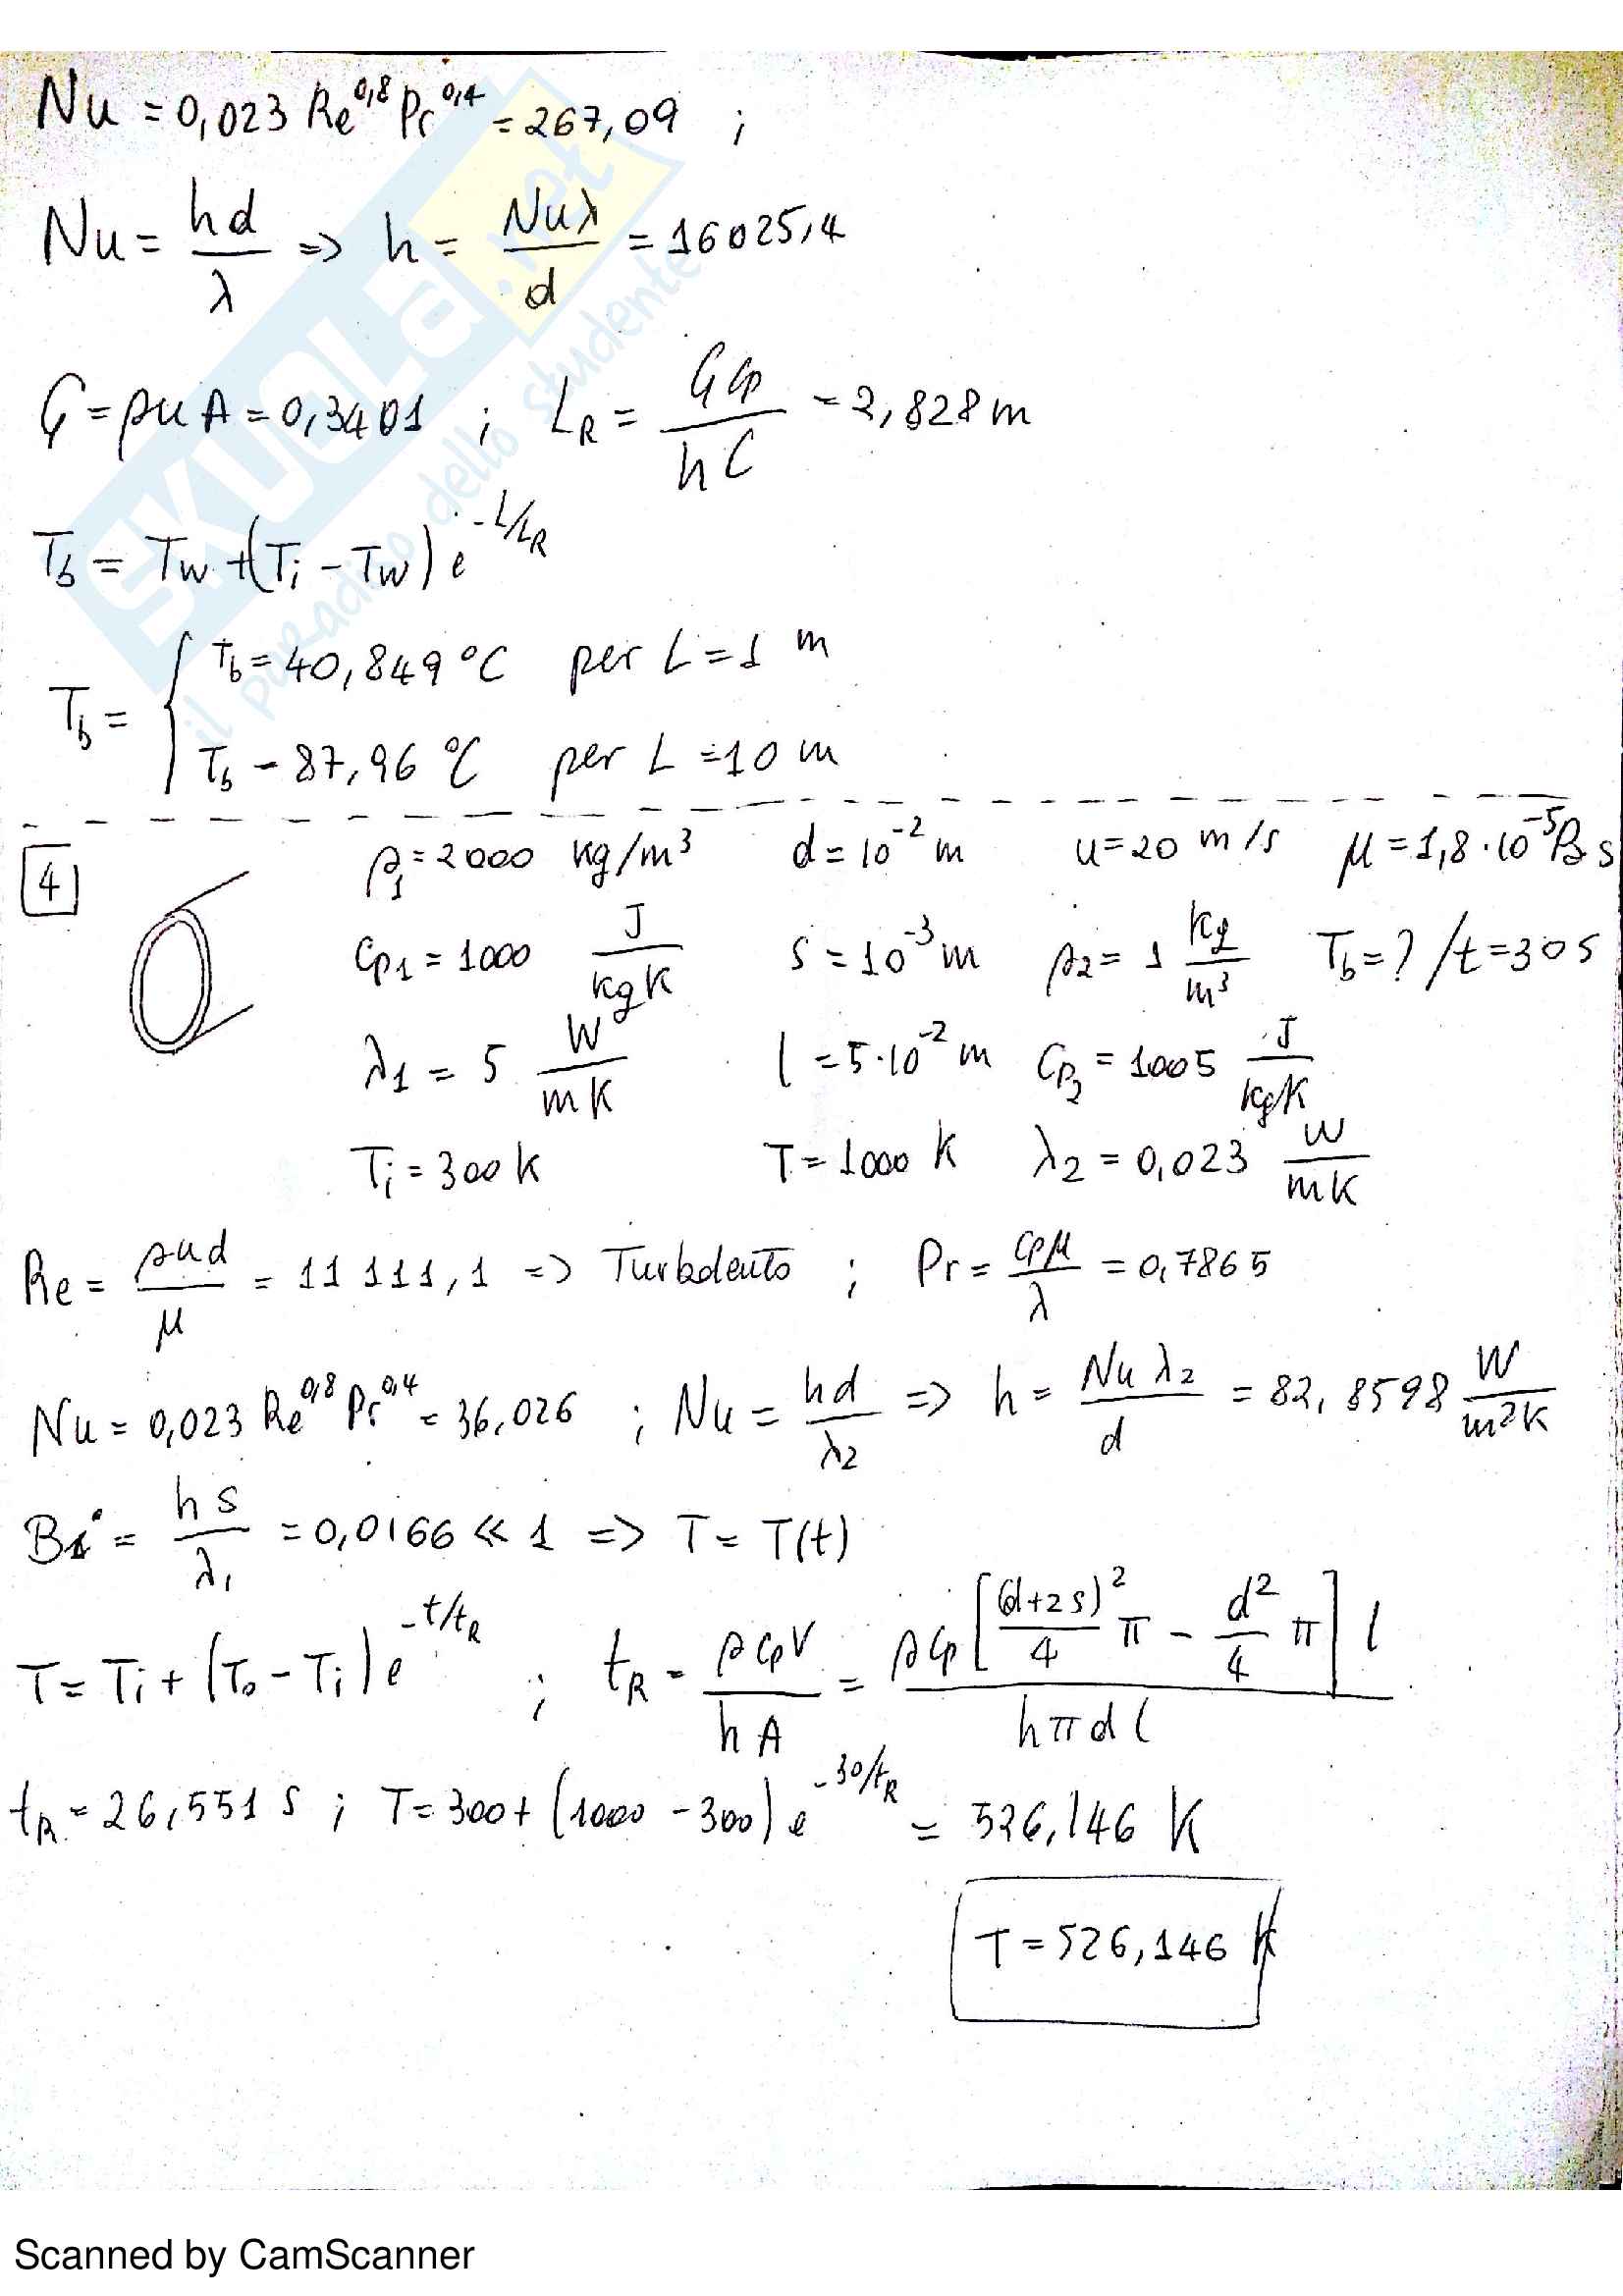 Nu = 0,023 Re^0,8 Pr^0,4 = 267,09 ;
Nu = hd/λ => h = Nuλ/d = 16025,4
G = ρuA = 0,3401 ; L_R = Gcp/hC = 2,828 m
T_b = Tw + (Ti - Tw) e^-L/L_R
T_b = { T_b = 40,849 °C per L = 1 m
T_b = 87,96 °C per L = 10 m
4 ρ_1 = 2000 kg/m³ d = 10^-2 m u = 20 m/s μ = 1,8·10^-5 Pa s
cp_1 = 1000 J/kgK s = 10^-3 m ρ_2 = 1 kg/m³ T_b = ? / t = 30 s
λ_1 = 5 W/mK l = 5·10^-2 m cp_2 = 1005 J/kgK
T_i = 300 K T = 1000 K λ_2 = 0,023 W/mK
Re = ρud/μ = 11 111,1 => Turbolento ; Pr = cpμ/λ = 0,7865
Nu = 0,023 Re^0,8 Pr^0,4 = 36,026 ; Nu = hd/λ_2 => h = Nu λ_2/d = 82,8598 W/m²K
Bi = hs/λ_1 = 0,0166 << 1 => T = T(t)
T = Ti + (T_0 - Ti) e^-t/t_R ; t_R = ρcpV/hA = ρcp[(d+2s)²/4 π - d²/4 π] l/hπdl
t_R = 26,551 s ; T = 300 + (1000 - 300) e^-30/t_R = 526,146 K
T = 526,146 K
SKUOLA.net
il paradiso dello studente
Scanned by CamScanner